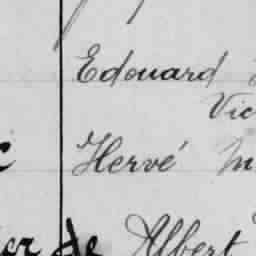 Edouard
Vic
Hervé
de Albert